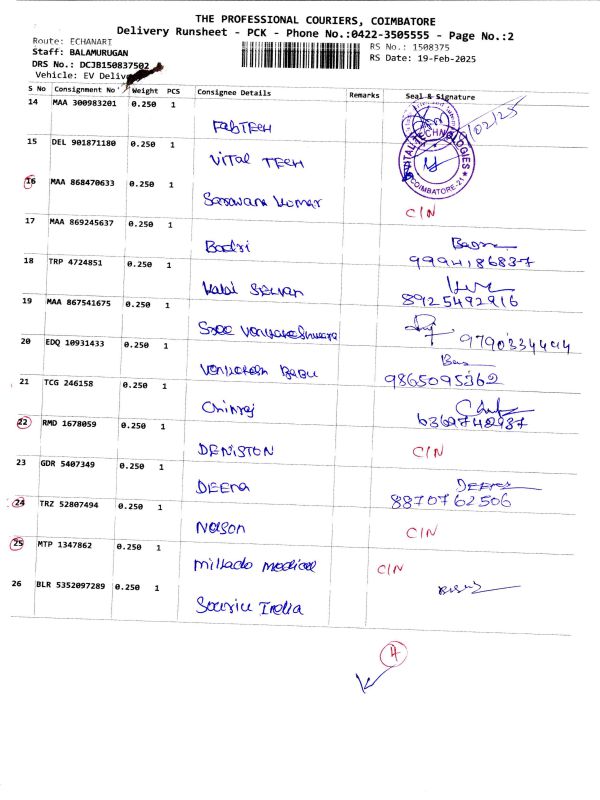 THE PROFESSIONAL COURIERS, COIMBATORE
Delivery Runsheet - PCK - Phone No.:0422-3505555 - Page No.:2
Route: ECHANARI
RS No.: 1508375
Staff: BALAMURUGAN
RS Date: 19-Feb-2025
DRS No.: DCJB150837502
Vehicle: EV
S No Consignment No Weight PCS Consignee Details Remarks Seal & Signature
14 MAA 300983201 0.250 1
FabTECH
/02/25
15 DEL 901871180 0.250 1
VITAL TECH
VITAL TECHNOLOGIES
COIMBATORE-21
16 MAA 868470633 0.250 1
Saravana Kumar C/N
17 MAA 869245637 0.250 1
Badri
9994186837
18 TRP 4724851 0.250 1
Kalai SELvan 8925492916
19 MAA 867541675 0.250 1
Sree 9790334444
20 EDQ 10931433 0.250 1
BABU 9865095362
21 TCG 246158 0.250 1
Chinraj 6369742937
22 RMD 1678059 0.250 1
DENISTON C/N
23 GDR 5407349 0.250 1
DEENA DEENA
8870762506
24 TRZ 52807494 0.250 1
Nelson C/N
25 MTP 1347862 0.250 1
Medical C/N
26 BLR 5352097289 0.250 1
India
4